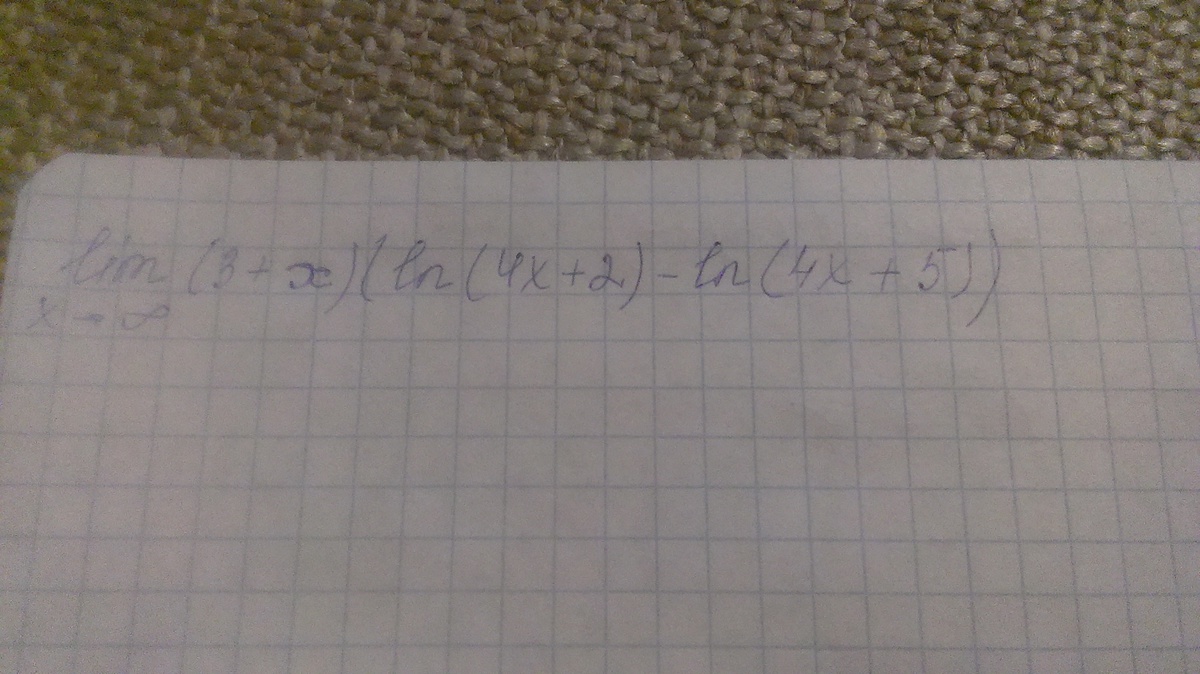 lim (3+x)(ln(4x+2)-ln(4x+5))
x→∞